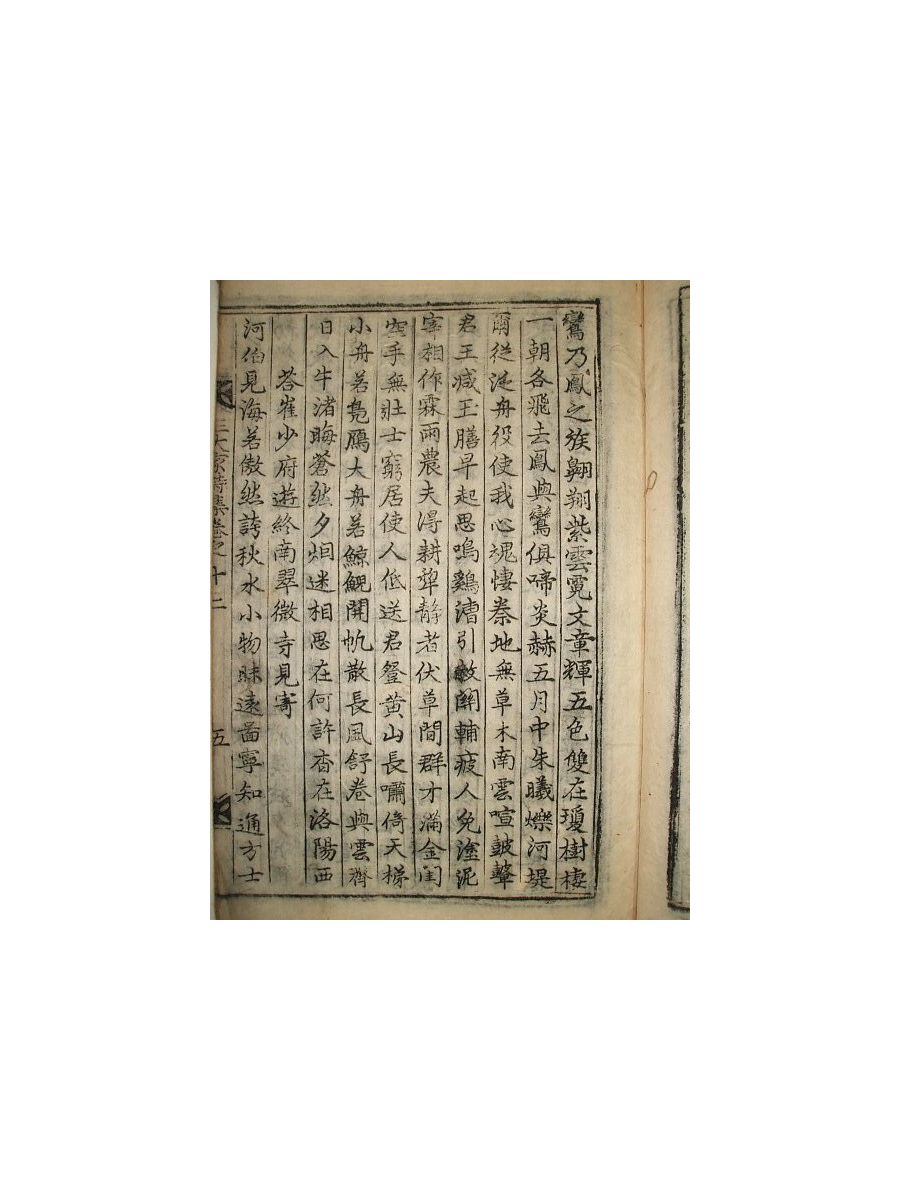 鸞乃鳳之族翱翔紫雲霓文章輝五色雙在瓊樹棲
一朝各飛去鳳與鸞俱啼炎赫五月中朱曦爍河堤
爾從泛舟役使我心魂悽秦地無草木南雲喧鼓鼙
君王減玉膳早起思鳴鷄漕引救關輔疲人免塗泥
宰相作霖雨農夫得耕犂靜者伏草間群才滿金閨
空手無壯士窮居使人低送君登黄山長嘯倚天梯
小舟若鳧鴈大舟若鯨鯢開帆散長風舒卷與雲齊
日入牛渚晦蒼然夕烟迷相思在何許杳在洛陽西
荅崔少府遊終南翠微寺見寄
河伯見海若傲然誇秋水小物昧遠啚寧知通方士
卷之十二
五